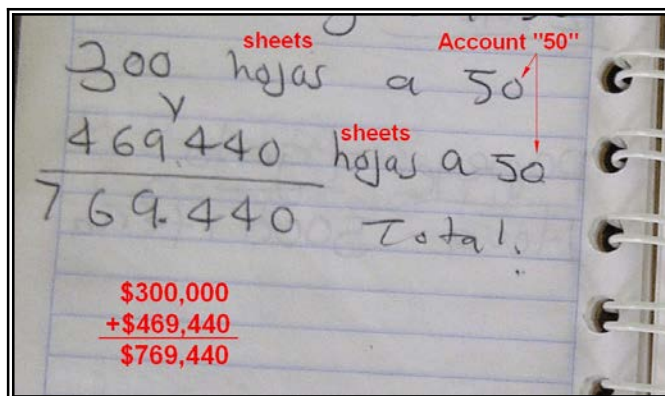 sheets
Account "50"
300 hojas a 50
y
sheets
469.440 hojas a 50
769.440 Total.
$300,000
+$469,440
$769,440